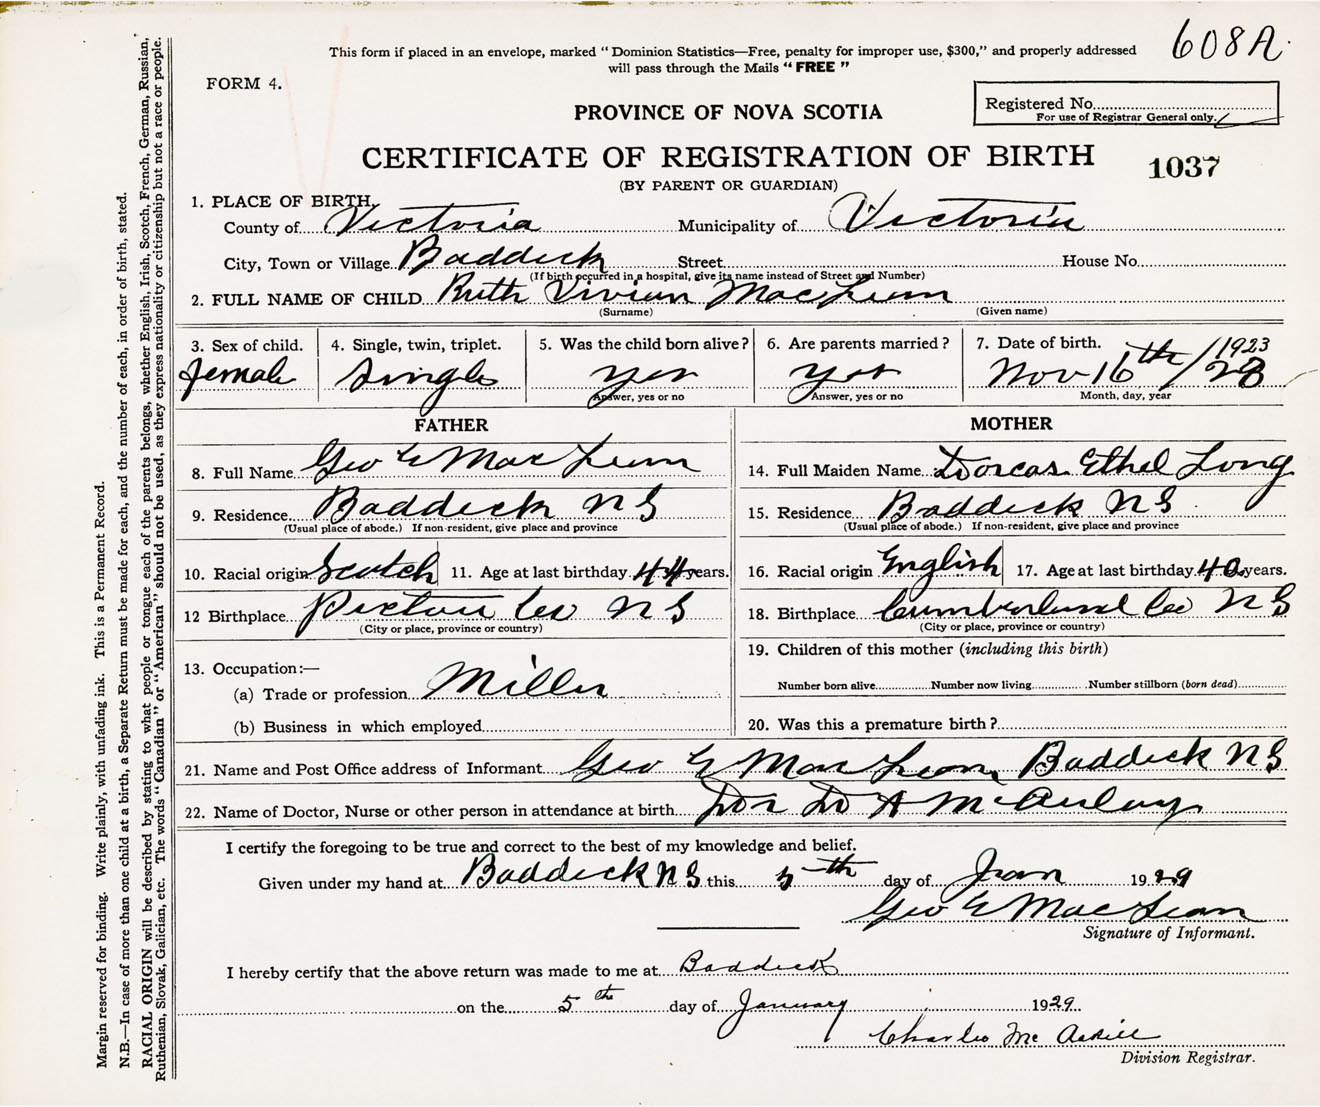 608A.
This form if placed in an envelope, marked "Dominion Statistics—Free, penalty for improper use, $300," and properly addressed
will pass through the Mails "FREE"
FORM 4.
PROVINCE OF NOVA SCOTIA
Registered No.
For use of Registrar General only.
CERTIFICATE OF REGISTRATION OF BIRTH
1037
(BY PARENT OR GUARDIAN)
1. PLACE OF BIRTH,
County of Victoria Municipality of Victoria
City, Town or Village Baddeck Street House No.
(If birth occurred in a hospital, give its name instead of Street and Number)
2. FULL NAME OF CHILD Ruth Vivian MacLean
(Surname) (Given name)
3. Sex of child. 4. Single, twin, triplet. 5. Was the child born alive? 6. Are parents married? 7. Date of birth.
female Single yes yes Nov 16th/28 1923
Answer, yes or no Answer, yes or no Month, day, year
FATHER MOTHER
8. Full Name Geo E MacLean 14. Full Maiden Name Dorcas Ethel Long
9. Residence Baddeck N S 15. Residence Baddeck N S
(Usual place of abode.) If non-resident, give place and province (Usual place of abode.) If non-resident, give place and province
10. Racial origin Scotch 11. Age at last birthday 44 years. 16. Racial origin English 17. Age at last birthday 40 years.
12 Birthplace Pictou Co N S 18. Birthplace Cumberland Co N S
(City or place, province or country) (City or place, province or country)
13. Occupation:— 19. Children of this mother (including this birth)
(a) Trade or profession Miller Number born alive Number now living Number stillborn (born dead)
(b) Business in which employed 20. Was this a premature birth?
21. Name and Post Office address of Informant Geo E MacLean, Baddeck N S
22. Name of Doctor, Nurse or other person in attendance at birth Dr D A McAulay
I certify the foregoing to be true and correct to the best of my knowledge and belief.
Given under my hand at Baddeck N S this 5th day of Jan 1929
Geo E MacLean
Signature of Informant.
I hereby certify that the above return was made to me at Baddeck
on the 5th day of January 1929
Charles McAskill
Division Registrar.
Margin reserved for binding. Write plainly, with unfading ink. This is a Permanent Record.
N.B.—In case of more than one child at a birth, a Separate Return must be made for each, and the number of each, in order of birth, stated.
RACIAL ORIGIN will be described by stating to what people or tongue each of the parents belongs, whether English, Irish, Scotch, French, German, Russian,
Ruthenian, Slovak, Galician, etc. The words "Canadian" or "American" should not be used, as they express nationality or citizenship but not a race or people.